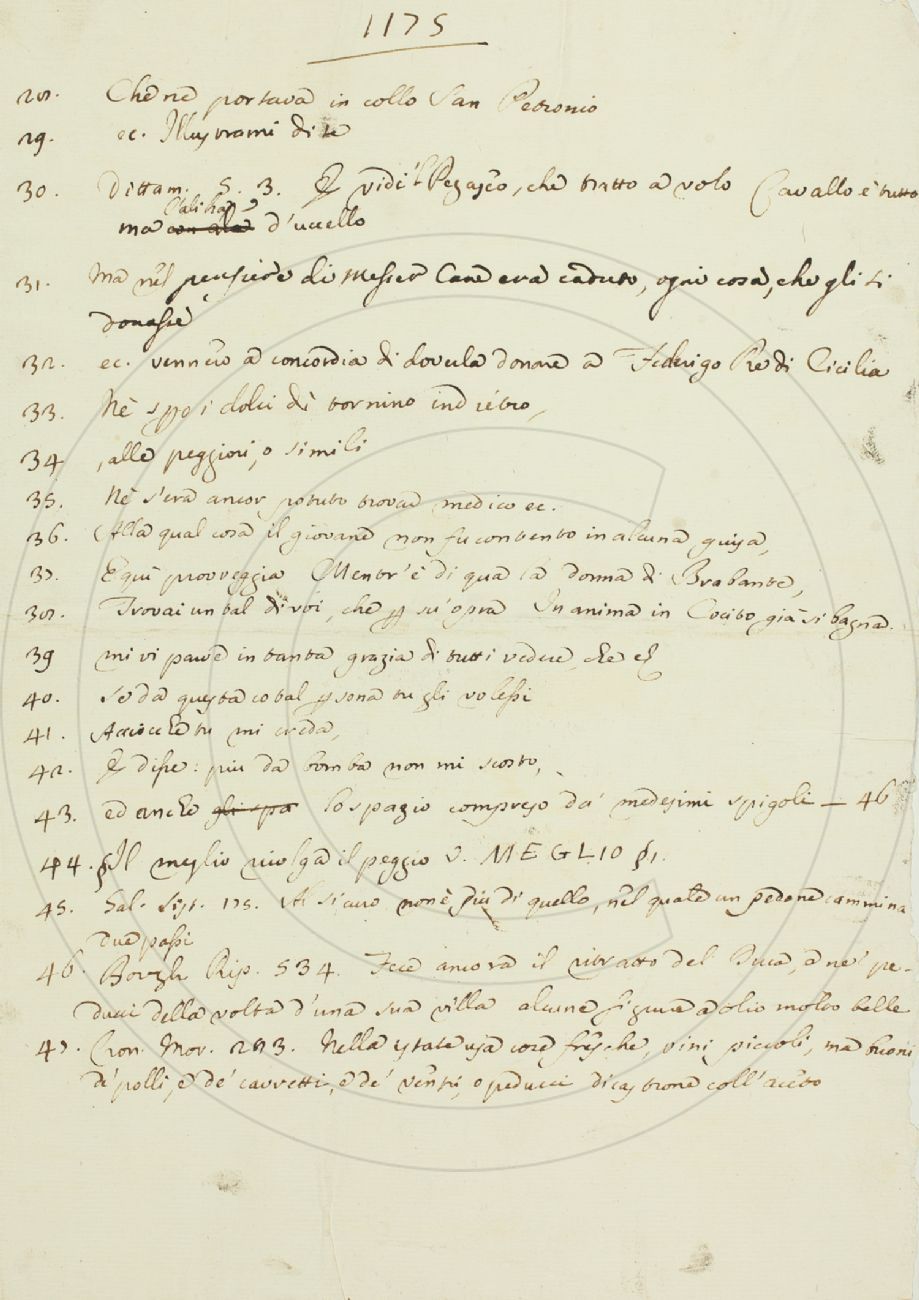 1175
28. Che ne portava in collo San Petronio
29. ec. Illustrami di te
30. Dittam. 5. 3. E vidi 'l Pegaseo, che tratto a volo Cavallo è tutto
ma l'ali ha con ale d'uccello
31. Ma nel pensiero di Messer Cane era caduto, ogni cosa, che gli si
donasse
32. ec. vennero a concordia di dovella donare a Federigo Re di Cicilia
33. Nè spero i dolci dì tornino indietro,
34 , alle peggiori, o simili
35. Nè s'era ancor potuto trovar medico ec.
36. Alla qual cosa il giovane non fu contento in alcuna guisa,
37. E qui provveggia Mentr'è di qua la donna di Brabante,
38. Trovai un tal di voi, che per su' opra In anima in Cocito già si bagna.
39 mi vi parve in tanta grazia di tutti vedere, che
40. Se da questa cotal persona tu gli volessi
41. Acciocchè tu mi creda,
42. E disse: più da bomba non mi scosto,
43. ed anche gli spa lo spazio compreso da' medesimi spigoli — 46
44. § Il meglio ricolga il peggio V. MEGLIO §1.
45. Sal. 175. Al sicuro non è più di quello, nel quale un pedone cammina
due passi
46. Borgh. Rip. 534. Fece ancora il ritratto del Duca, e ne' pe-
ducci della volta d'una sua villa alcune figure a olio molto belle
47. Cron. Mor. 283. Nella state usa cose fresche, vini piccoli, ma buoni
de' polli, e de' cavretti, e de' ventri, o peducci di castrone coll'aceto